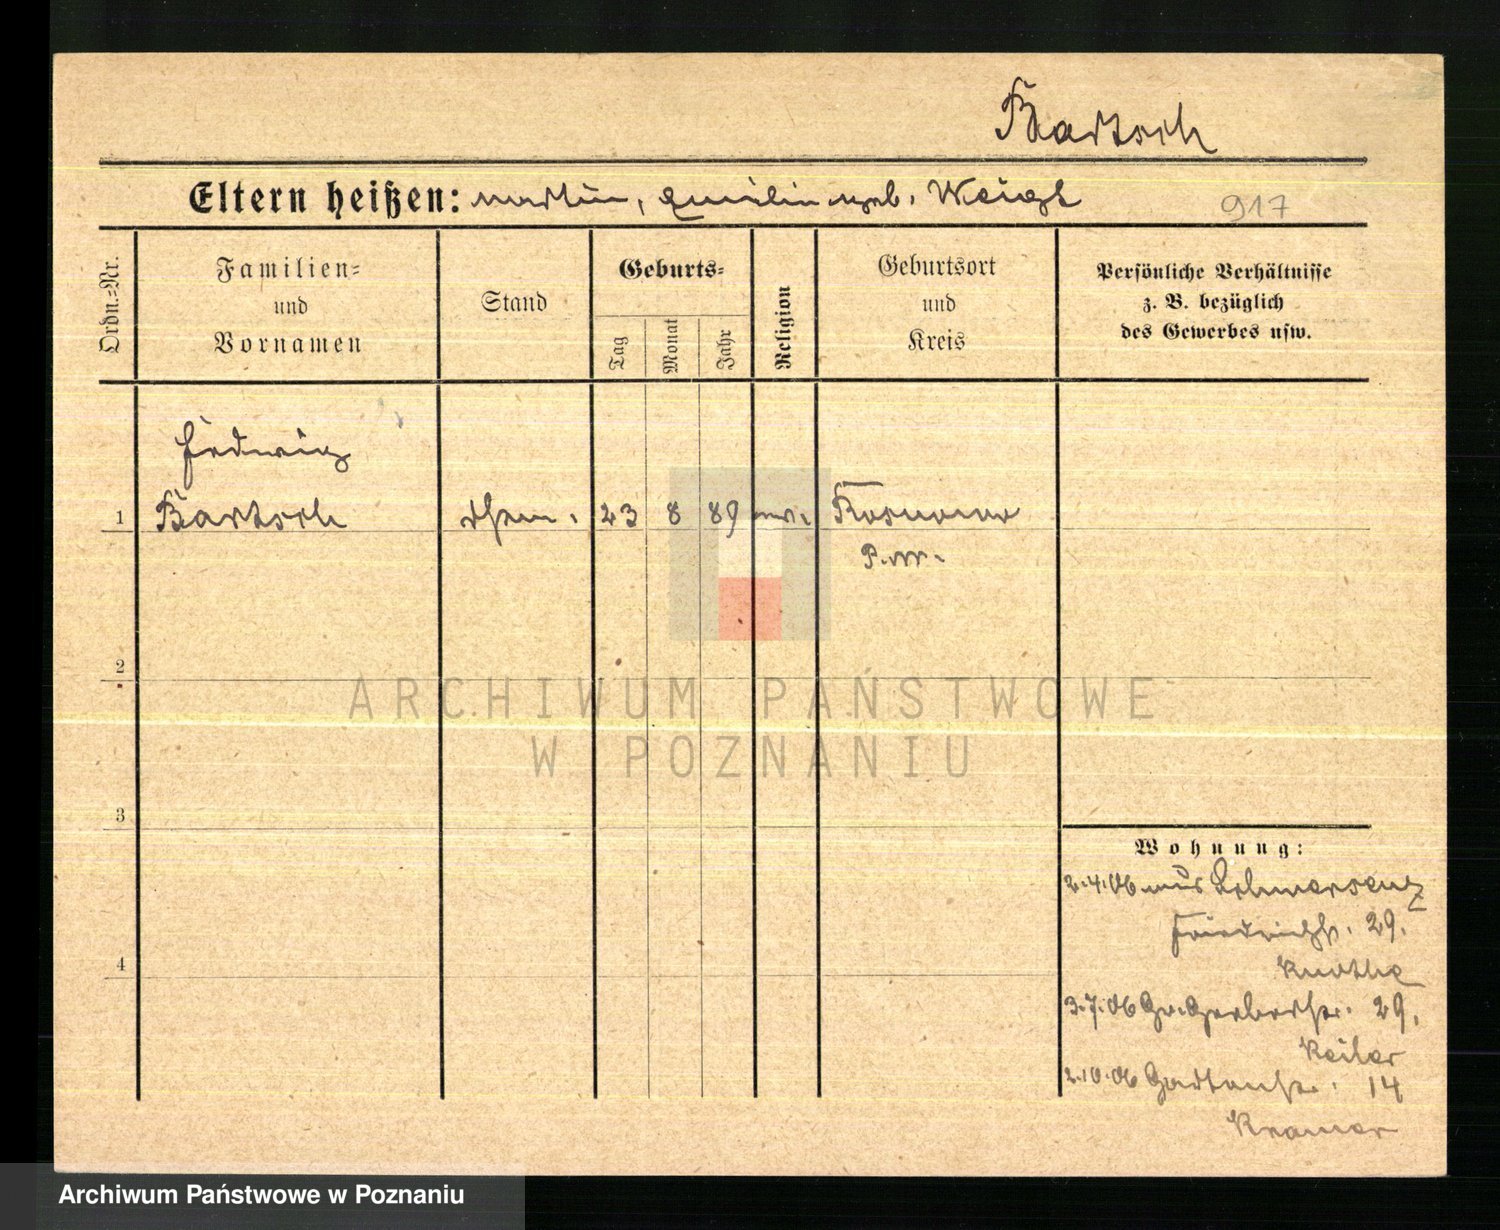 Bartsch
Eltern heißen: Martin, Emilie geb. Weigt
917
Ordn.=Nr.
Familien=
und
Vornamen
Stand
Geburts=
Tag
Monat
Jahr
Religion
Geburtsort
und
Kreis
Persönliche Verhältnisse
z. B. bezüglich
des Gewerbes usw.
Hedwig
1 Bartsch 23 8 89 ev.
P.W.
2
3
4
Wohnung:
2.4.06 aus Schwersenz
Friedrichstr. 29.
Knothe
3.7.06 Gr. Gerberstr. 29.
Keiler
2.10.06 Gartenstr. 14
Kramer
ARCHIWUM PAŃSTWOWE
W POZNANIU
Archiwum Państwowe w Poznaniu